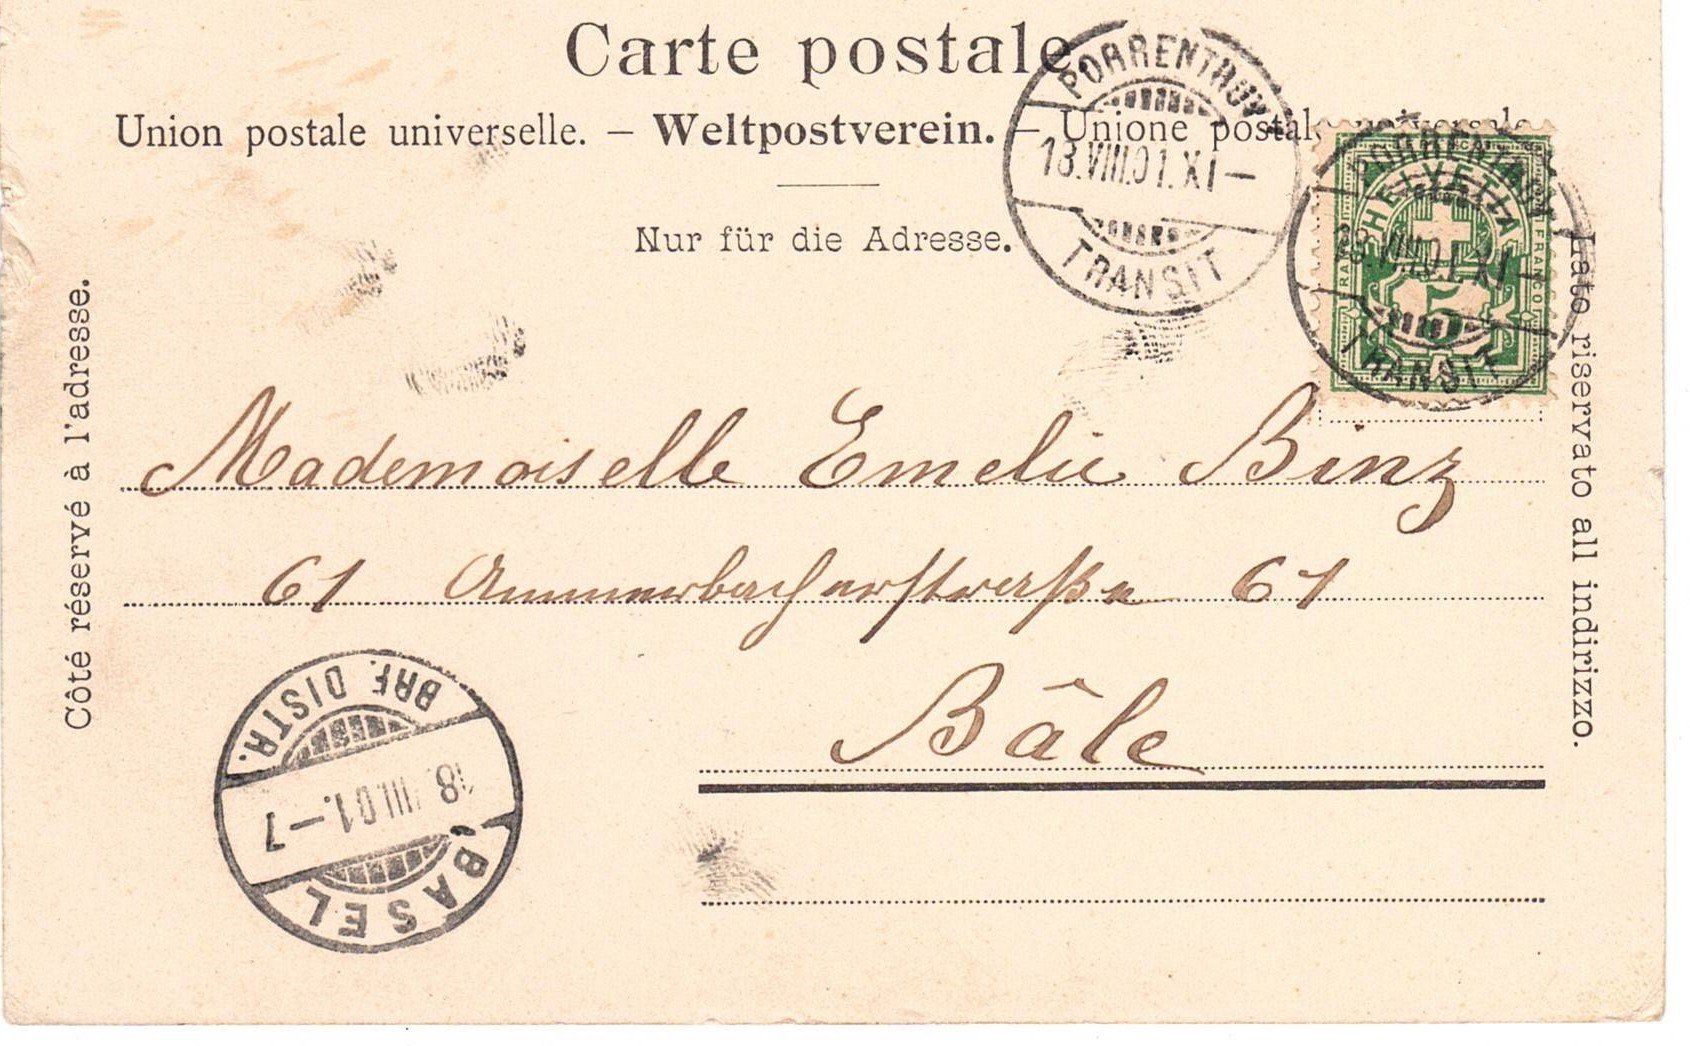 Carte postale
Union postale universelle. – Weltpostverein. – Unione postale universale
Nur für die Adresse.
Côté réservé à l'adresse.
Lato riservato all indirizzo.
PORRENTRUY
18.VIII.01.XI–
TRANSIT
PORRENTRUY
18.VIII.01.XI–
TRANSIT
HELVETIA
FRANCO
5
Mademoiselle Emelie Binz
61 Ammerbacherstraße 61
Bâle
BASEL
18.VIII.01.–7
BRF. DISTR.